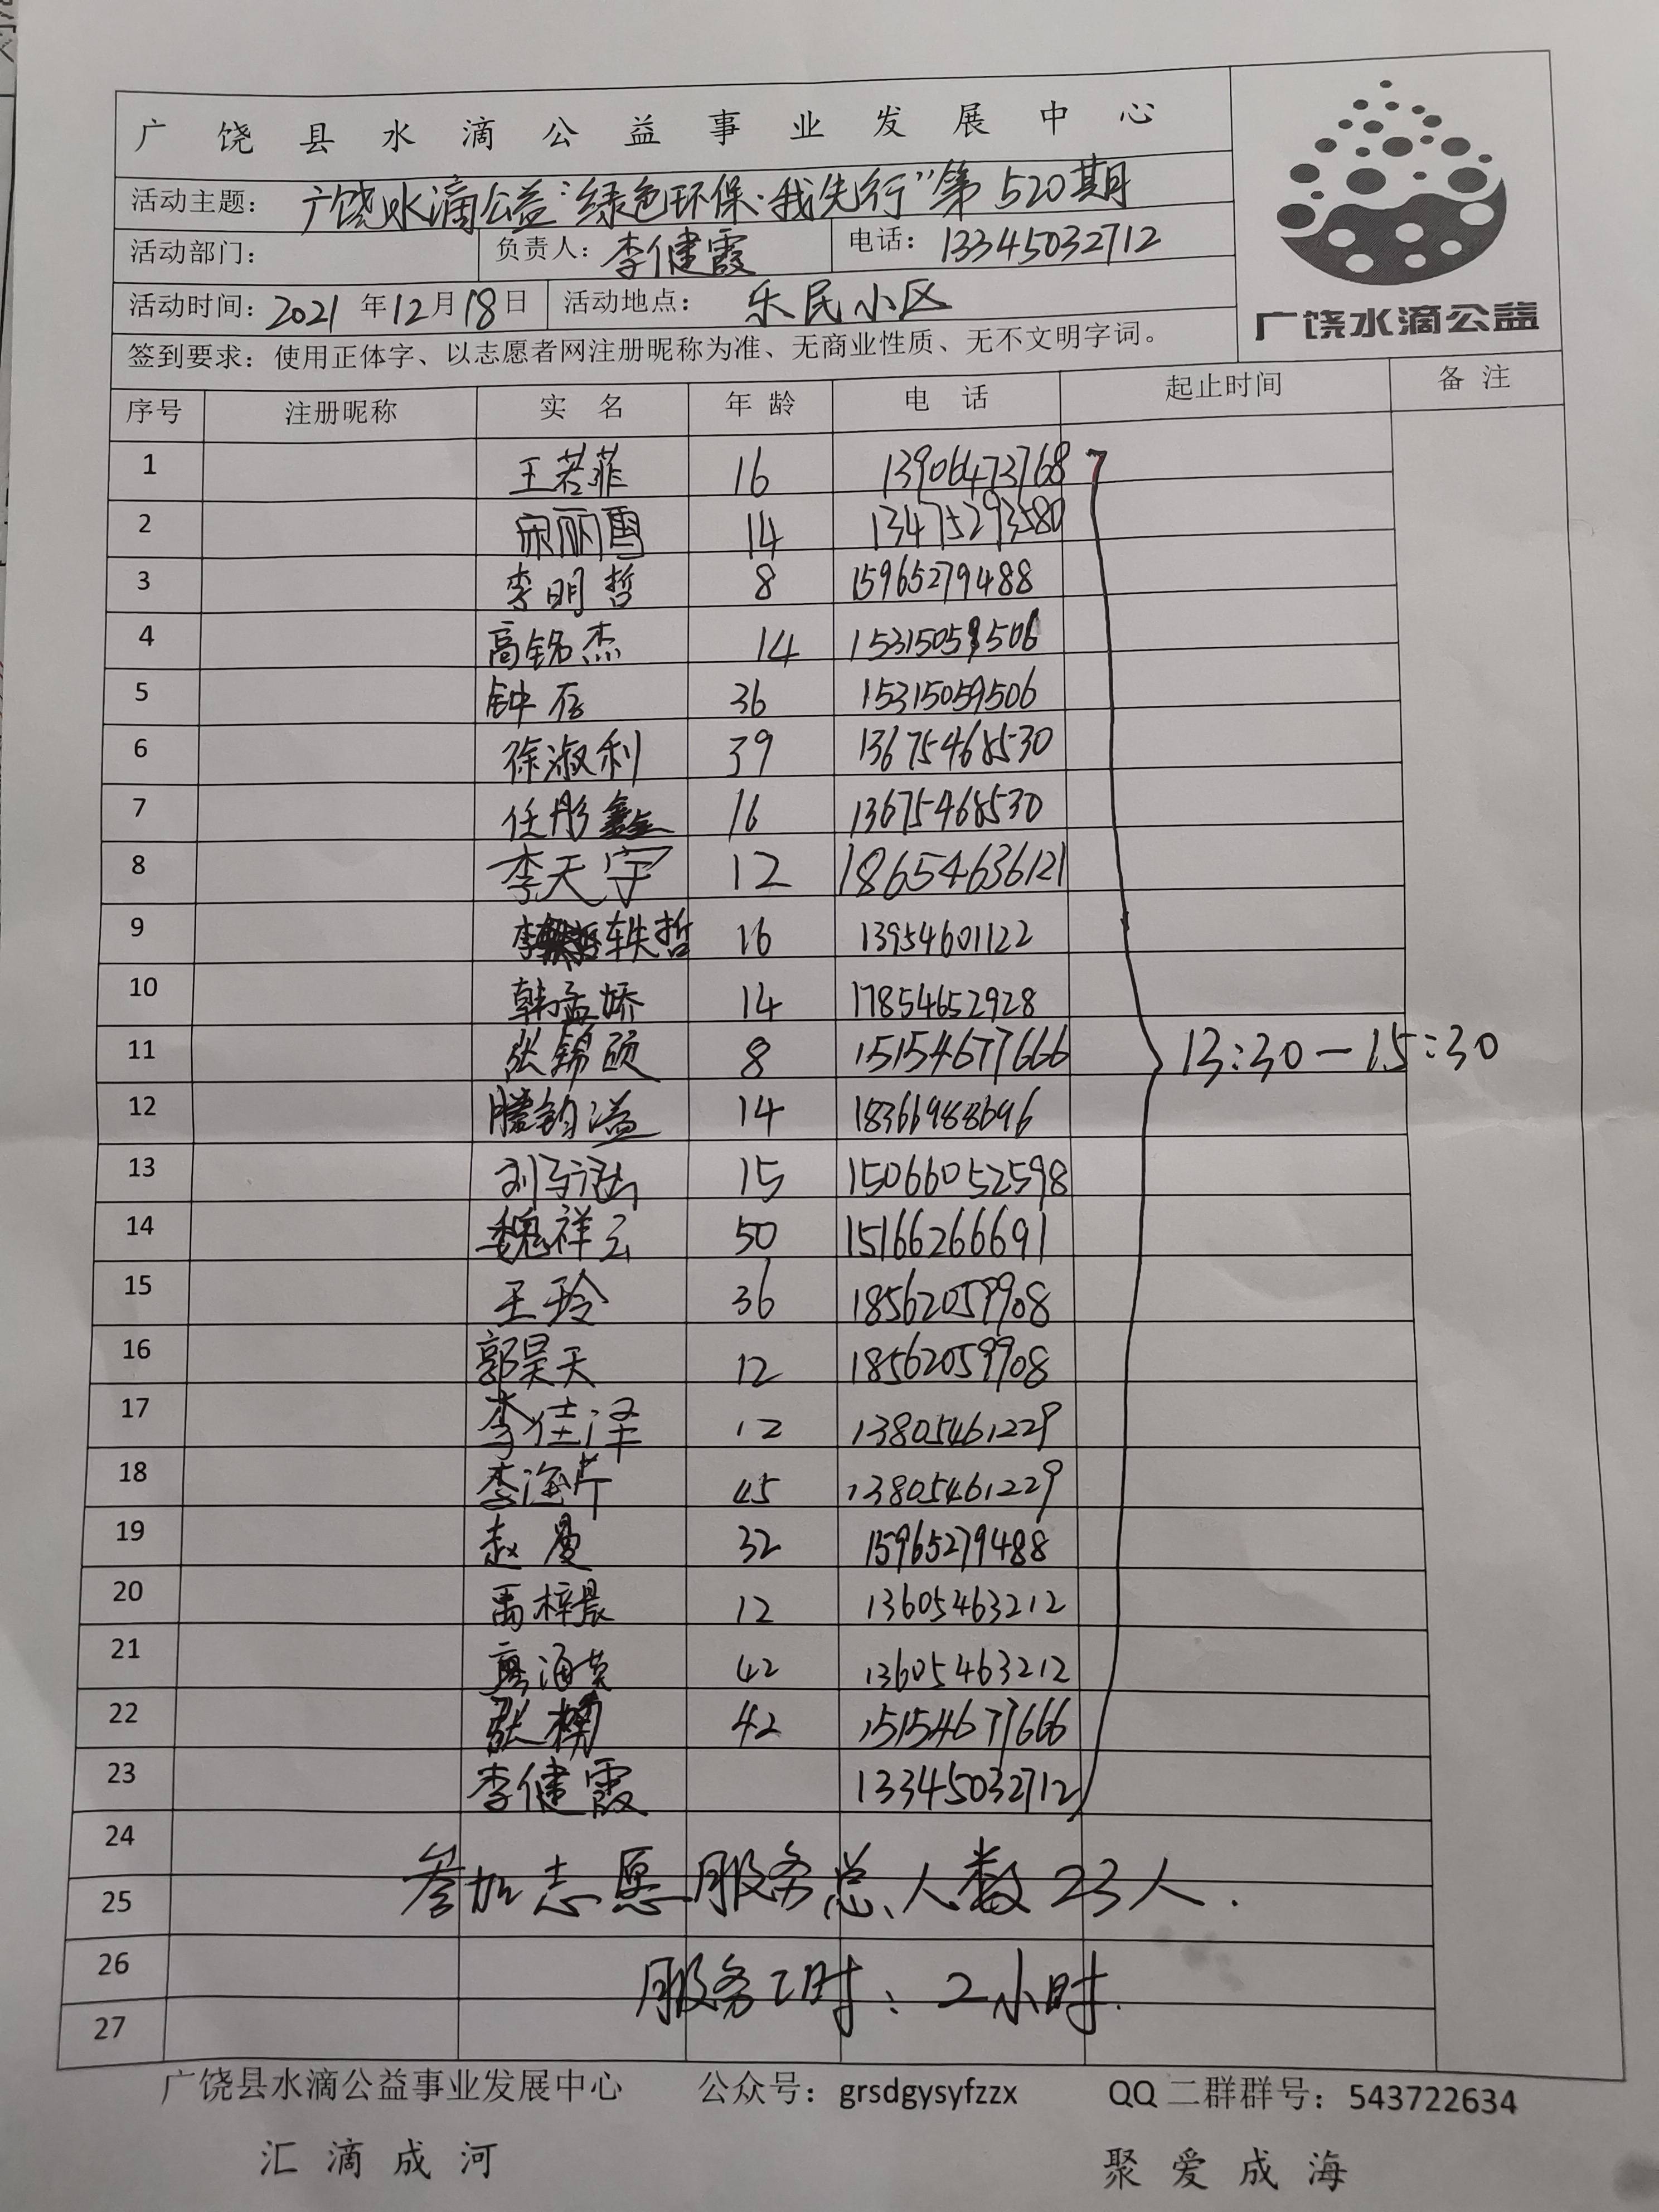 广饶县水滴公益事业发展中心
广饶水滴公益
活动主题：广饶水滴公益“绿色环保·我先行”第520期
活动部门： 负责人：李健霞 电话：13345032712
活动时间：2021年12月18日 活动地点：乐民小区
签到要求：使用正体字、以志愿者网注册昵称为准、无商业性质、无不文明字词。
序号 注册昵称 实名 年龄 电话 起止时间 备注
1 王若菲 16 13906473768
2 宋丽雪 14 13475293580
3 李明哲 8 15965279488
4 高铭杰 14 15315059506
5 钟存 36 15315059506
6 徐淑利 39 13675468530
7 任彤鑫 16 13675468530
8 李天宇 12 18654636121
9 李轶哲 16 13954601122
10 韩孟娇 14 17854652928
11 张锦硕 8 15154677666 13:30－15:30
12 滕钧溢 14 18366988696
13 刘子涵 15 15066052598
14 魏祥云 50 15166266691
15 王玲 36 18562059908
16 郭昊天 12 18562059908
17 李佳泽 12 13805461229
18 李海 45 13805461229
19 赵曼 32 15965279488
20 梓晨 12 13605463212
21 海 42 13605463212
22 张楠 42 15154677666
23 李健霞 13345032712
24
25 参加志愿服务总人数23人.
26 服务工时：2小时.
27
广饶县水滴公益事业发展中心 公众号：grsdgysyfzzx QQ二群群号：543722634
汇滴成河 聚爱成海